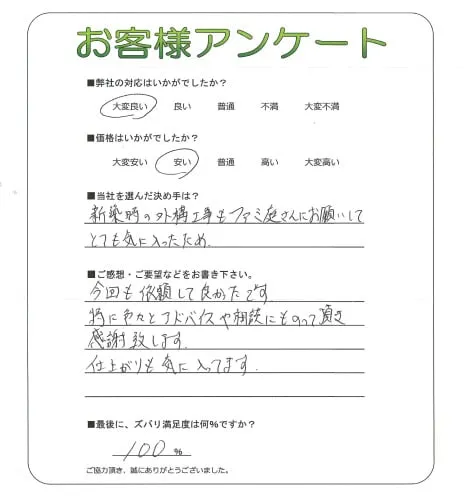 お客様アンケート
■弊社の対応はいかがでしたか?
大変良い 良い 普通 不満 大変不満
■価格はいかがでしたか?
大変安い 安い 普通 高い 大変高い
■当社を選んだ決め手は?
新築時の外構工事もファミ庭さんにお願いして
とても気に入ったため.
■ご感想・ご要望などをお書き下さい。
今回も依頼して良かたです
特に色々とアドバイスや相談にものって頂き
感謝致します.
仕上がりも気に入ってます.
■最後に、ズバリ満足度は何%ですか?
100 %
ご協力頂き、誠にありがとうございました。